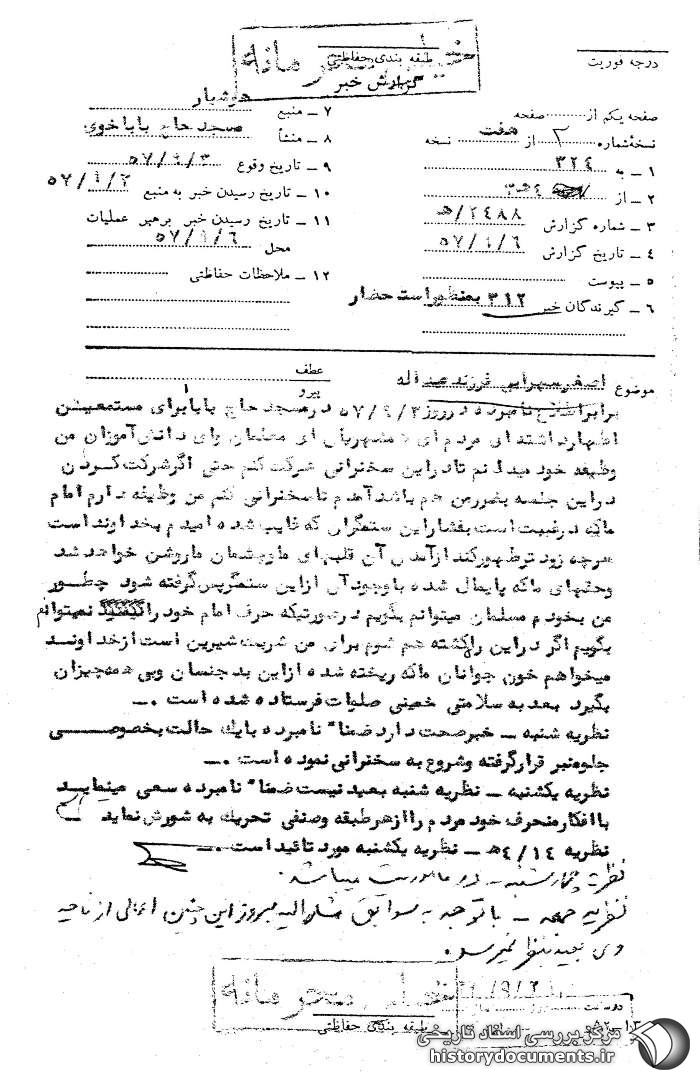 خیلی محرمانه
طبقه بندی حفاظتی
گزارش خبر
درجه فوریت
صفحه یکم از صفحه
نسخهٔ شماره ۲ از هفت نسخه
۱ ـ به ۳۲۴
۲ ـ از ۴ه‍۳
۳ ـ شماره گزارش ۲۴۸۸/ه‍
۴ ـ تاریخ گزارش ۵۷/۹/۶
۵ ـ پیوست
۶ ـ گیرندگان خبر ۳۱۲ بمنظور است حضار
۷ ـ منبع هوشیار
۸ ـ منشأ مسجد حاج باباخوی
۹ ـ تاریخ وقوع ۵۷/۹/۳
۱۰ ـ تاریخ رسیدن خبر به منبع ۵۷/۹/۳
۱۱ ـ تاریخ رسیدن خبر برهبر عملیات
محل ۵۷/۹/۶
۱۲ ـ ملاحظات حفاظتی
موضوع اصغر سهرابی فرزند عبداله
عطف
پیرو
برابر اطلاع نامبرده در روز ۵۷/۹/۳ در مسجد حاج بابا برای مستمعین
اظهار داشته ای مردم ای همشهریان ای معلمان وای دانش آموزان من
وظیفه خود میدانم تا در این سخنرانی شرکت کنم حتی اگر شرکت کردن
در این جلسه بضرر من هم باشد آمدم تا سخنرانی کنم من وظیفه دارم امام
ما که در غیبت است بفشار این ستمگران که غایب شده امیدم بخداوند است
هرچه زود تر ظهور کند از آمدن آن قلبهای ما و چشمان ما روشن خواهد شد
وحقهای ما که پایمال شده با وجود آن از این ستمگر پس گرفته شود چطور
من بخودم مسلمان میتوانم بگویم در صورتیکه حرف امام خود را نمیتوانم
بگویم اگر در این راه کشته هم شوم برای من شربت شیرین است از خداوند
میخواهم خون جوانان ما که ریخته شده از این بد جنسان وبی همه چیزان
بگیرد بعد به سلامتی خمینی صلوات فرستاده شده است ۰ـ
نظریه شنبه ـ خبر صحت دارد ضمناً نامبرده با یک حالت بخصوصی
جلو منبر قرار گرفته وشروع به سخنرانی نموده است ۰ـ
نظریه یکشنبه ـ نظریه شنبه بعید نیست ضمناً نامبرده سعی مینماید
با افکار منحرف خود مردم را از هر طبقه وصنفی تحریک به شورش نماید ـ
نظریه ۴/۱۴ه‍ ـ نظریه یکشنبه مورد تائید است ۰ـ
نظریه چهارشنبه ـ در ماموریت میباشد.
نظریه جمعه ـ با توجه به سوابق مشارالیه بروز این چنین اعمالی از ناحیه
وی بعید بنظر نمیرسد.
خیلی محرمانه
طبقه بندی حفاظتی
مرکز بررسی اسناد تاریخی
historydocuments.ir